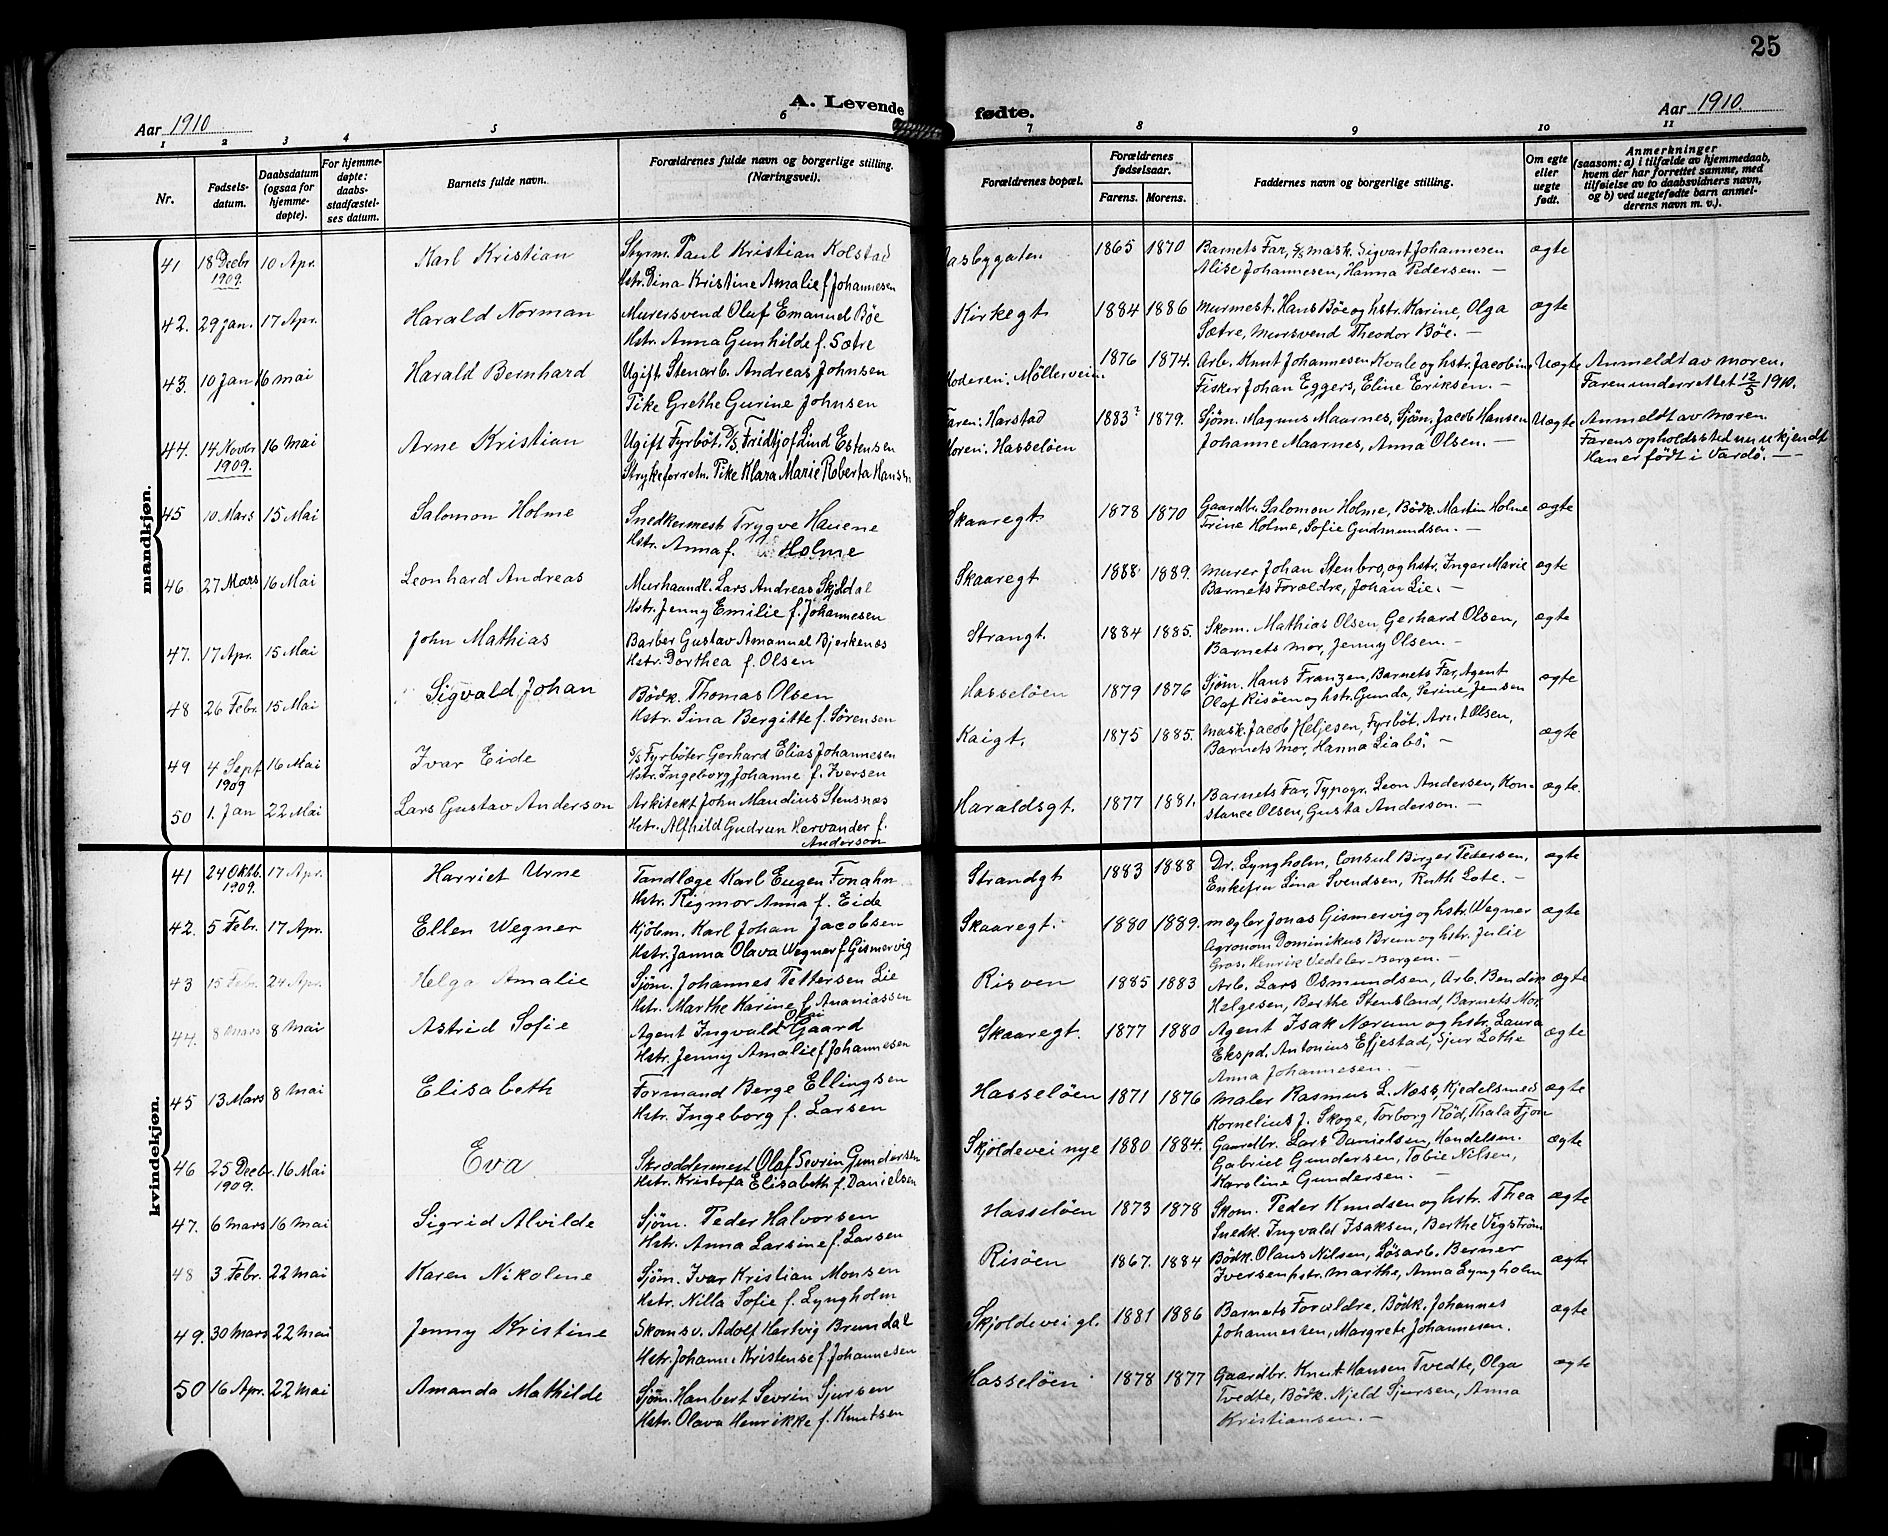 25
A. Levende fødte.
Aar 1910
Aar 1910.
1 2 3 4 5 6 7 8 9 10 11
Nr.
Fødsels-
datum.
Daabsdatum
(ogsaa for
hjemme-
døpte).
For hjemme-
døpte:
daabs-
stadfæstel-
ses datum.
Barnets fulde navn.
Forældrenes fulde navn og borgerlige stilling.
(Næringsvei).
Forældrenes bopæl.
Forældrenes
fødselsaar.
Farens. Morens.
Faddernes navn og borgerlige stilling.
Om egte
eller
uegte
født.
Anmerkninger
(saasom: a) i tilfælde av hjemmedaab,
hvem der har forrettet samme, med
tilføielse av to daabsvidners navn,
og b) ved uegtefødte barn anmel-
derens navn m. v.).
mandkjøn.
41 18 Decbr 10 Apr. Karl Kristian Styrm. Paul Kristian Kolstad asbygaten 1865 1870 Barnets Far, S/S mask. Sigvart Johannesen ægte
1909. Hstr. Dina Kristine Amalie f. Johannesen Alise Johannesen, Hanna Pedersen. —
42. 29 jan. 17 Apr. Harald Norman Murersvend Oluf Emanuel Bøe Kirkegt 1884 1886 Murmest. Hans Bøe og hstr. Karine, Olga ægte
Hstr. Anna Gunhilde f. Sætre Sætre, Mursvend Theodor Bøe. —
43. 10 Jan 16 mai Harald Bernhard Ugift Stenarb. Andreas Johnsen Moderen: Møllerveien. 1876 1874. Arb. Knut Johannesen Kvale og hstr. Jacobine Uægte Anmeldt av moren.
Pike Grethe Gurine Johnsen Fisker Johan Eggers, Eline Eriksen. — Faren underrettet 12/5 1910.
44. 14 Novbr 16 Mai Arne Kristian Ugift Fyrbøt. D/S. Fridtjof Lind Estensen Faren: Harstad 1883? 1879. Sjøm. Magnus Maarnes, Sjøm. Jacob Hansen Uægte Anmeldt av moren
1909. Strykeforretn. Pike Klara Marie Roberta Hansen Moren: Hasseløen Johanne Maarnes, Anna Olsen. — Farens opholdssted nu ukjendt
Han er født i Vardø. —
45 10 Mars 15 Mai Salomon Holme Snedkermest Trygve Hauene Skaaregt. 1878 1870 Gaardbr. Salomon Holme, Bødk. Martin Holme ægte
Hstr. Anna f. Holme Trine Holme, Sofie Gudmundsen. —
46 27 Mars 16 Mai Leonhard Andreas Murhaandl. Lars Andreas Skjoldal Skaaregt 1888 1889. Murer Johan Stenbro, og hstr. Inger Marie ægte
Hstr. Jenny Emilie f. Johannesen Barnets Forældre, Johan Lie. —
47. 17 Apr. 15 Mai John Mathias Barber Gustav Amanuel Bjerkenes Strangt. 1884 1885. Skom. Mathias Olsen Gerhard Olsen, ægte
Hstr. Dorthea f. Olsen Barnets mor, Jenny Olsen. —
48 26 Febr. 15 Mai Sigvald Johan Bødk. Thomas Olsen Hasseløen 1879 1876 Sjøm. Hans Franzen, Barnets Far, Agent ægte
Hstr. Sina Bergitte f. Sørensen Olaf Risøen og hstr. Gunda, Serine Jensen
49 4 Sept 16 Mai Ivar Eide S/S Fyrbøter Gerhard Elias Johannesen Kaigt. 1875 1885. Mask. Jacob Heljesen, Fyrbøt. Arnt Olsen, ægte
1909 Hstr. Ingeborg Johanne f. Iversen Barnets Mor, Hanna Liabø. —
50 1. Jan 22 Mai Lars Gustav Anderson Arkitekt John Maudius Stensnæs Haraldsgt. 1877 1881. Barnets Far, Typogr. Leon Andersen, Kon- ægte.
Hstr. Alfhild Gudrun Hervander f. stance Olsen, Gusta Anderson. —
Anderson
kvindekjøn.
41 24 Oktb. 17 Apr. Harriet Urne Tandlæge Karl Eugen Fonahn Strandgt 1883 1888 Dr. Lyngholm, Consul Birger Pedersen, ægte
1909. Hstr. Rigmor Anna f. Eide Enkefru Lina Svendsen, Ruth Lote. —
42. 5 Febr. 17 Apr. Ellen Wegner Kjøbm. Karl Johan Jacobsen Skaaregt. 1880 1889. Mægler Jonas Gismervig og hstr. Wegner ægte
Hstr. Janna Olava Wegner f. Gismervig Agronom Dominikus Brun og hstr. Julie
Gros. Henrik Vedeler-Bergen. —
43 15 Febr. 24 Apr. Helga Amalie Sjøm. Johannes Pettersen Lie Risøen 1885 1883 Arb. Lars Osmundsen, Arb. Bendix ægte
Hstr. Marthe Karine f. Ananiassen Helgesen, Berthe Stensland, Barnets Mor.
44. 8 Mars 8 Mai Astrid Sofie Agent Ingvald Olai Gaard Skaaregt. 1877 1880 Agent Isak Nærum og hstr. Laura ægte
Hstr. Jenny Amalie f Johannesen Ekspd. Antonius Efjestad, Sjur Lothe
Anna Johannesen. —
45 13 Mars 8 Mai Elisabeth Formand Berge Ellingsen Hasseløen 1871 1876 Maler Rasmus L. Næss, Kjedelsmed ægte
Hstr. Ingeborg f. Larsen Kornelius J. Skoge, Torborg Rød, Thala Fjon
46 25 Decbr. 16 Mai Eva Skræddermest Olaf Sevrin Gundersen Skjoldevei nye 1880 1884. Gaardbr. Lars Danielsen, Handelsm. ægte
1909. Hstr. Kristofa Elisabeth f. Danielsen Gabriel Gundersen, Tobie Nilsen,
Karoline Gundersen. —
47. 6 mars 16 mai Sigrid Alvilde Sjøm. Peder Halvorsen Hasseløen 1873 1878 Skom. Peder Knudsen og hstr. Thea ægte
Hstr. Anna Larsine f. Larsen Snedk. Ingvald Isaksen, Berthe Vigstrøm
48 3 Febr. 22 mai Karen Nikoline Sjøm. Ivar Kristian Monsen Risøen 1867. 1884 Bødk. Olaus Nilsen, Løsarb. Berner ægte
Hstr. Nilla Sofie f. Lyngholm Iversen hstr. Marthe, Anna Lyngholm
49. 30 mars 22 mai Jenny Kristine Skomsv. Adolf Hertvig Brundal Skjoldevei gl. 1881 1886 Barnets Forældre, Bødk. Johannes ægte
Hstr. Johanne Kristense f Johannesen Johannessen, Margrete Johannesen.
50 16 Apr. 22 mai Amanda Mathilde Sjøm. Hanbert Sevrin Sjursen Hasseløen 1878 1877 Gaardbr. Knut Hansen Tvedte, Olga ægte
Hstr. Olava Henrikke f. Knutsen Tvedte, Bødk. Njeld Sjursen, Anna
Kristiansen. —